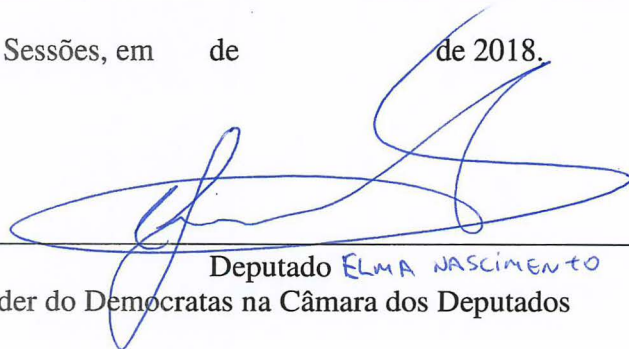 Sessões, em de de 2018.
Deputado ELMA NASCIMENTO
der do Democratas na Câmara dos Deputados